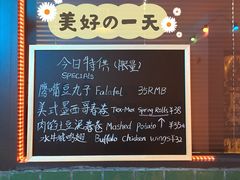 美好の一天
今日特供(限量)
SPECIALS
鹰嘴豆丸子 Falafel 35RMB
美式墨西哥春卷 Tex-Mex Spring Rolls ¥38
肉馅土豆泥春卷 Mashed Potato ↑ ¥35
水牛城鸡翅 Buffalo Chicken wings ¥32